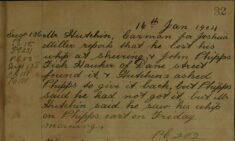 32
16th Jan 1904
Hutchin, Carman for Joshua
Miller reports that he lost his
whip at Sheering & John Phipps
Fish Hawker of Dane Street
found it & Hutchins asked
Phipps to give it back, but Phipps
said he had not got it, but Mr
Hutchin said he saw his whip
on Phipps cart on Friday
morning.
PC 202